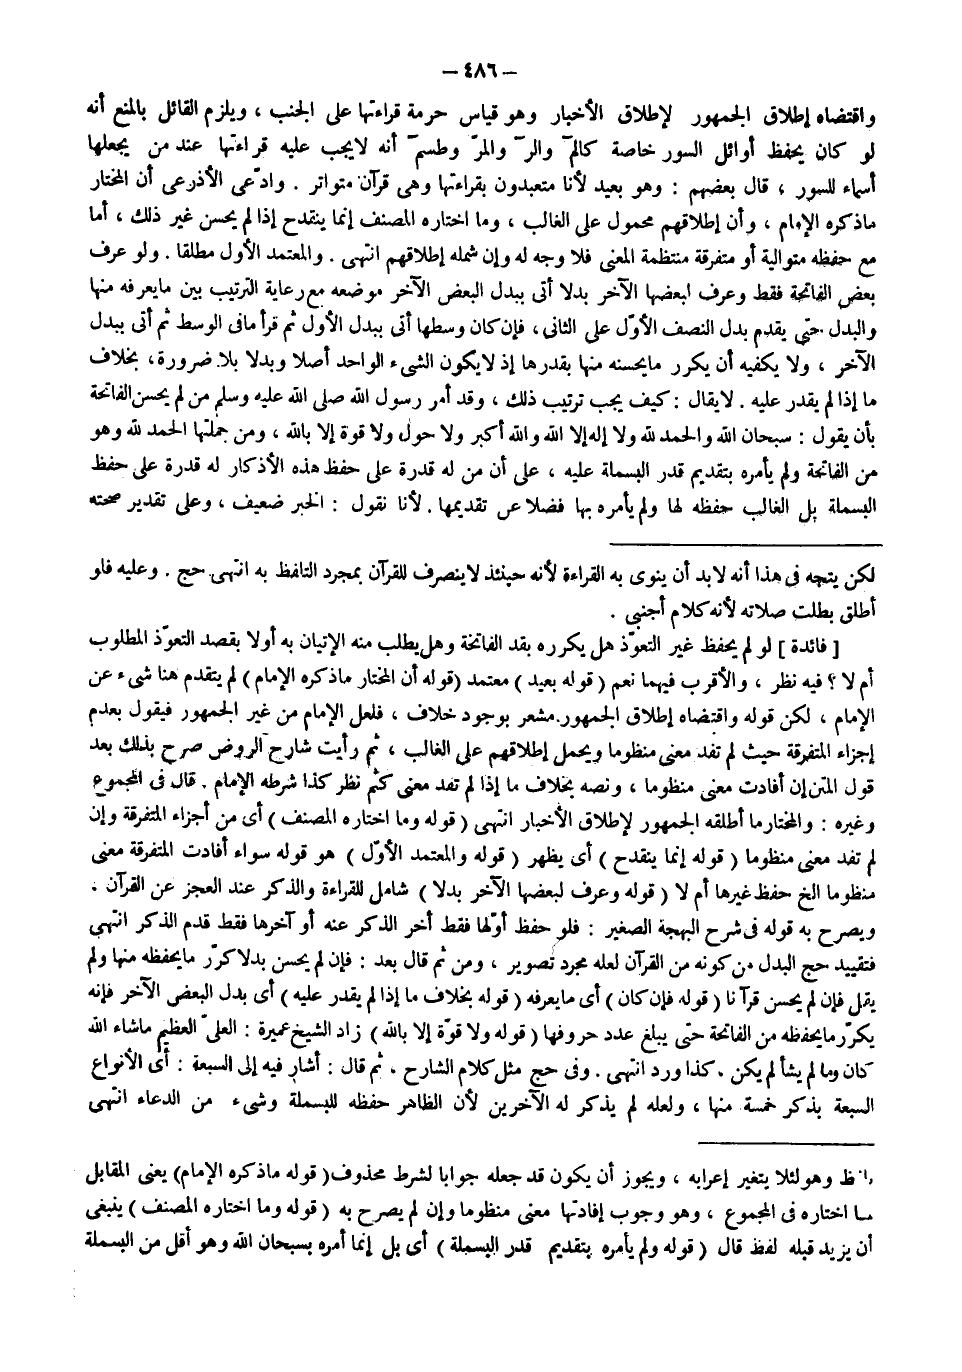 – ٤٨٦ –
واقتضاه إطلاق الجمهور لإطلاق الأخبار وهو قياس حرمة قراءتها على الجنب ، ويلزم القائل بالمنع أنه
لو كان يحفظ أوائل السور خاصة كالم~ والر~ والمر~ وطسم~ أنه لايجب عليه قراءتها عند من يجعلها
أسماء للسور ، قال بعضهم : وهو بعيد لأنا متعبدون بقراءتها وهى قرآن متواتر . وادّعى الأذرعى أن المختار
ماذكره الإمام ، وأن إطلاقهم محمول على الغالب ، وما اختاره المصنف إنما ينقدح إذا لم يحسن غير ذلك ، أما
مع حفظه متوالية أو متفرقة منتظمة المعنى فلا وجه له وإن شمله إطلاقهم انتهى . والمعتمد الأول مطلقا . ولو عرف
بعض الفاتحة فقط وعرف لبعضها الآخر بدلا أتى ببدل البعض الآخر موضعه مع رعاية الترتيب بين مايعرفه منها
والبدل حتى يقدم بدل النصف الأوّل على الثانى ، فإن كان وسطها أتى ببدل الأول ثم قرأ مافى الوسط ثم أتى ببدل
الآخر ، ولا يكفيه أن يكرر مايحسنه منها بقدرها إذ لايكون الشىء الواحد أصلا وبدلا بلا ضرورة ، بخلاف
ما إذا لم يقدر عليه . لايقال : كيف يجب ترتيب ذلك ، وقد أمر رسول الله صلى الله عليه وسلم من لم يحسن الفاتحة
بأن يقول : سبحان الله والحمد لله ولا إله إلا الله والله أكبر ولا حول ولا قوة إلا بالله ، ومن جملتها الحمد لله وهو
من الفاتحة ولم يأمره بتقديم قدر البسملة عليه ، على أن من له قدرة على حفظ هذه الأذكار له قدرة على حفظ
البسملة بل الغالب حفظه لها ولم يأمره بها فضلا عن تقديمها . لأنا نقول : الخبر ضعيف ، وعلى تقدير صحته
لكن يتجه فى هذا أنه لابد أن ينوى به القراءة لأنه حينئذ لاينصرف للقرآن بمجرد التلفظ به انتهى حج . وعليه فلو
أطلق بطلت صلاته لأنه كلام أجنبى .
[ فائدة ] لو لم يحفظ غير التعوّذ هل يكرره بقد الفاتحة وهل يطلب منه الإتيان به أولا بقصد التعوّذ المطلوب
أم لا ؟ فيه نظر ، والأقرب فيهما نعم ( قوله بعيد ) معتمد (قوله أن المختار ماذكره الإمام ) لم يتقدم هنا شىء عن
الإمام ، لكن قوله واقتضاه إطلاق الجمهور مشعر بوجود خلاف ، فلعل الإمام من غير الجمهور فيقول بعدم
إجزاء المتفرقة حيث لم تفد معنى منظوما ويحمل إطلاقهم على الغالب ، ثم رأيت شارح الروض صرح بذلك بعد
قول المتن إن أفادت معنى منظوما ، ونصه بخلاف ما إذا لم تفد معنى كثم نظر كذا شرطه الإمام . قال فى المجموع
وغيره : والمختار ما أطلقه الجمهور لإطلاق الأخبار انتهى ( قوله وما اختاره المصنف ) أى من أجزاء المتفرقة وإن
لم تفد معنى منظوما ( قوله إنما ينقدح ) أى يظهر ( قوله والمعتمد الأوّل ) هو قوله سواء أفادت المتفرقة معنى
منظوما الخ حفظ غيرها أم لا ( قوله وعرف لبعضها الآخر بدلا ) شامل للقراءة والذكر عند العجز عن القرآن .
ويصرح به قوله فى شرح البهجة الصغير : فلو حفظ أوّلها فقط أخر الذكر عنه أو آخرها فقط قدم الذكر انتهى
فتقييد حج البدل من كونه من القرآن لعله مجرد تصوير ، ومن ثم قال بعد : فإن لم يحسن بدلا كرّر مايحفظه منها ولم
يقل فإن لم يحسن قرآنا ( قوله فإن كان ) أى مايعرفه ( قوله بخلاف ما إذا لم يقدر عليه ) أى بدل البعض الآخر فإنه
يكرّر مايحفظه من الفاتحة حتى يبلغ عدد حروفها ( قوله ولا قوّة إلا بالله ) زاد الشيخ عميرة : العلىّ العظيم ماشاء الله
كان وما لم يشأ لم يكن . كذا ورد انتهى . وفى حج مثل كلام الشارح . ثم قال : أشار فيه إلى السبعة : أى الأنواع
السبعة بذكر خمسة منها ، ولعله لم يذكر له الآخرين لأن الظاهر حفظه للبسملة وشىء من الدعاء انتهى
وهو لئلا يتغير إعرابه ، ويجوز أن يكون قد جعله جوابا لشرط محذوف ( قوله ماذكره الإمام) يعنى المقابل
لما اختاره فى المجموع ، وهو وجوب إفادتها معنى منظوما وإن لم يصرح به ( قوله وما اختاره المصنف ) ينبغى
أن يزيد قبله لفظ قال ( قوله ولم يأمره بتقديم قدر البسملة ) أى بل إنما أمره بسبحان الله وهو أقل من البسملة